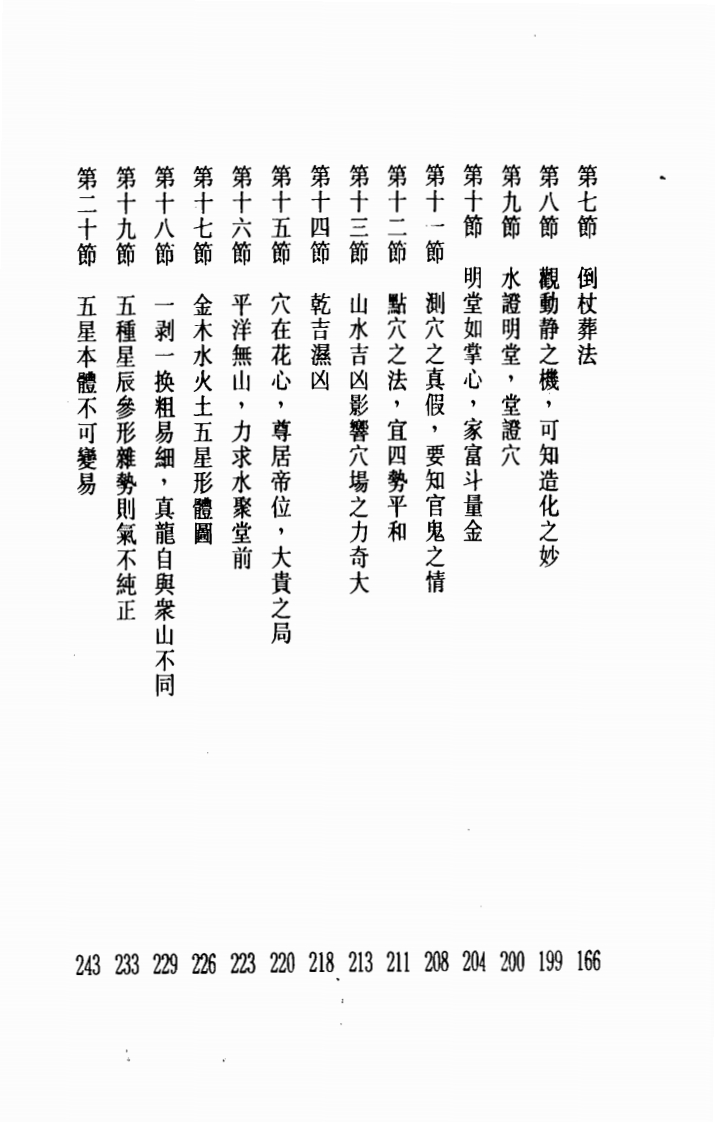 第七節 倒杖葬法 166
第八節 觀動靜之機，可知造化之妙 199
第九節 水證明堂，堂證穴 200
第十節 明堂如掌心，家富斗量金 204
第十一節 測穴之真假，要知官鬼之情 208
第十二節 點穴之法，宜四勢平和 211
第十三節 山水吉凶影響穴場之力奇大 213
第十四節 乾吉濕凶 218
第十五節 穴在花心，尊居帝位，大貴之局 220
第十六節 平洋無山，力求水聚堂前 223
第十七節 金木水火土五星形體圖 226
第十八節 一剥一换粗易細，真龍自與衆山不同 229
第十九節 五種星辰參形雜勢則氣不純正 233
第二十節 五星本體不可變易 243